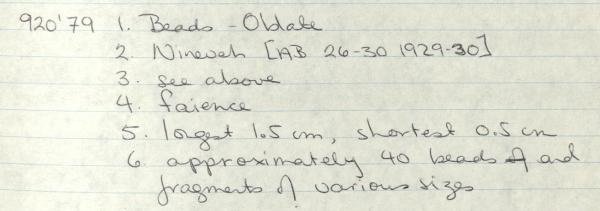 920'79 1. Beads - Oblate
2. Nineveh [AB 26-30 1929-30]
3. see above
4. faience
5. longest 1.5 cm, shortest 0.5 cm
6. approximately 40 beads and
fragments of various sizes